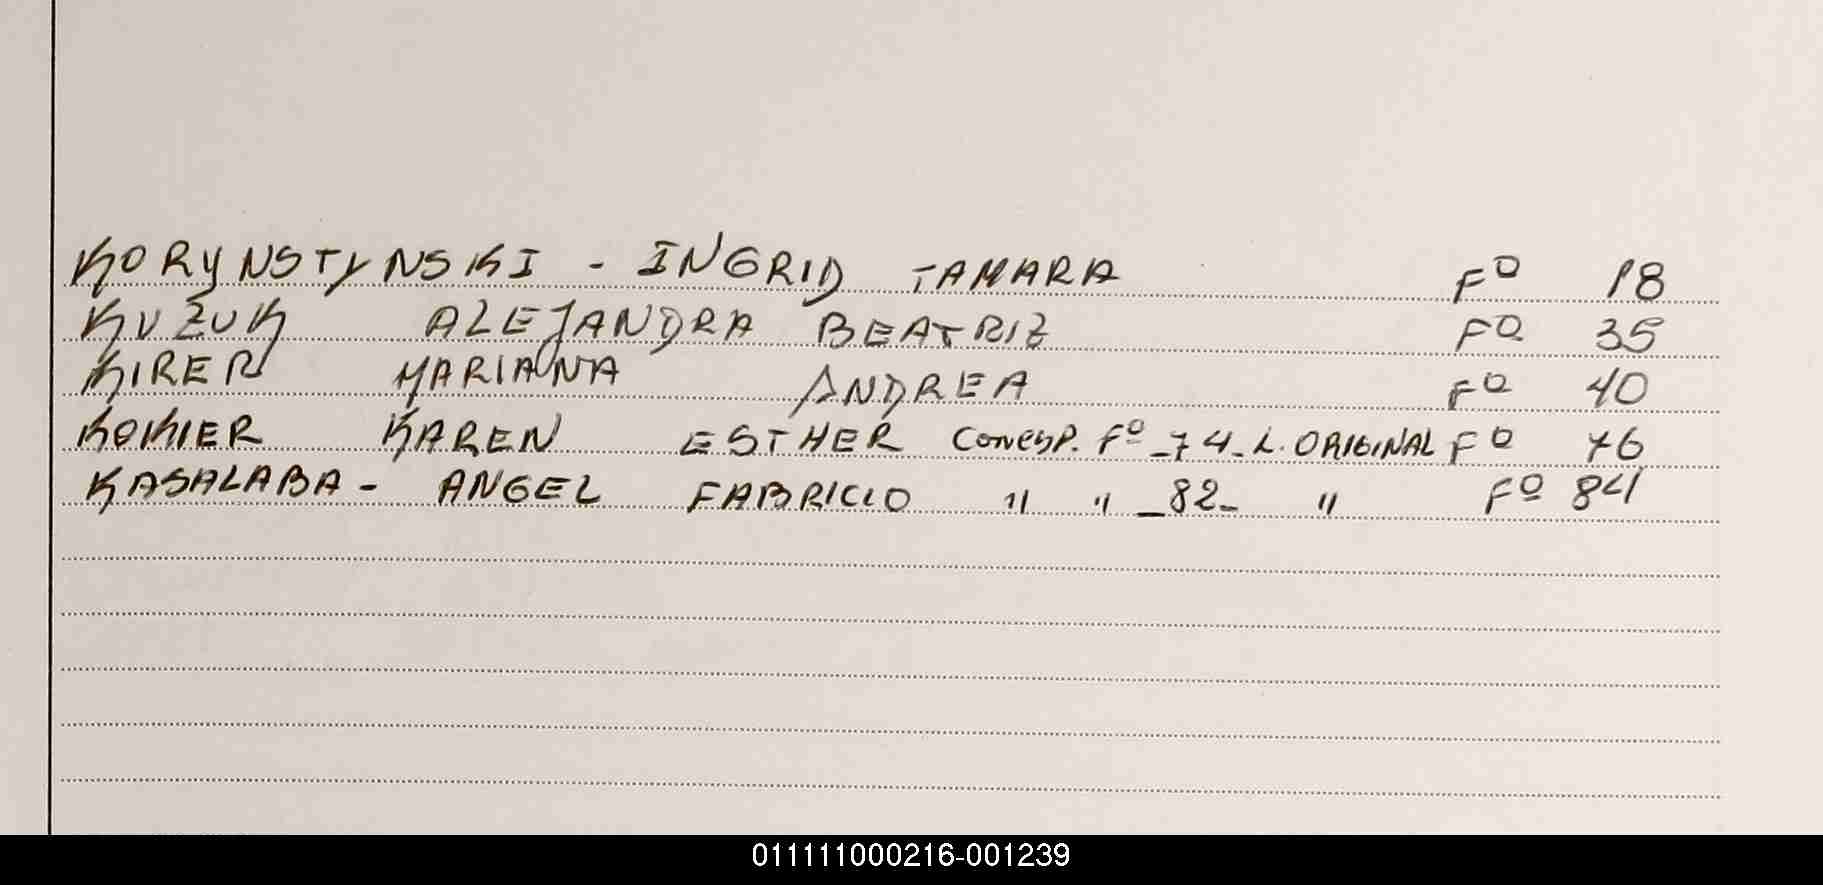 KORYNSTYNSKI - INGRID TAMARA Fº 18
KUZUK ALEJANDRA BEATRIZ Fº 35
KIRER MARIANA ANDREA Fº 40
KOKIER KAREN ESTHER Corresp. Fº - 74 - L. ORIGINAL Fº 76
KASALABA - ANGEL FABRICIO " " - 82 - " Fº 84
011111000216-001239